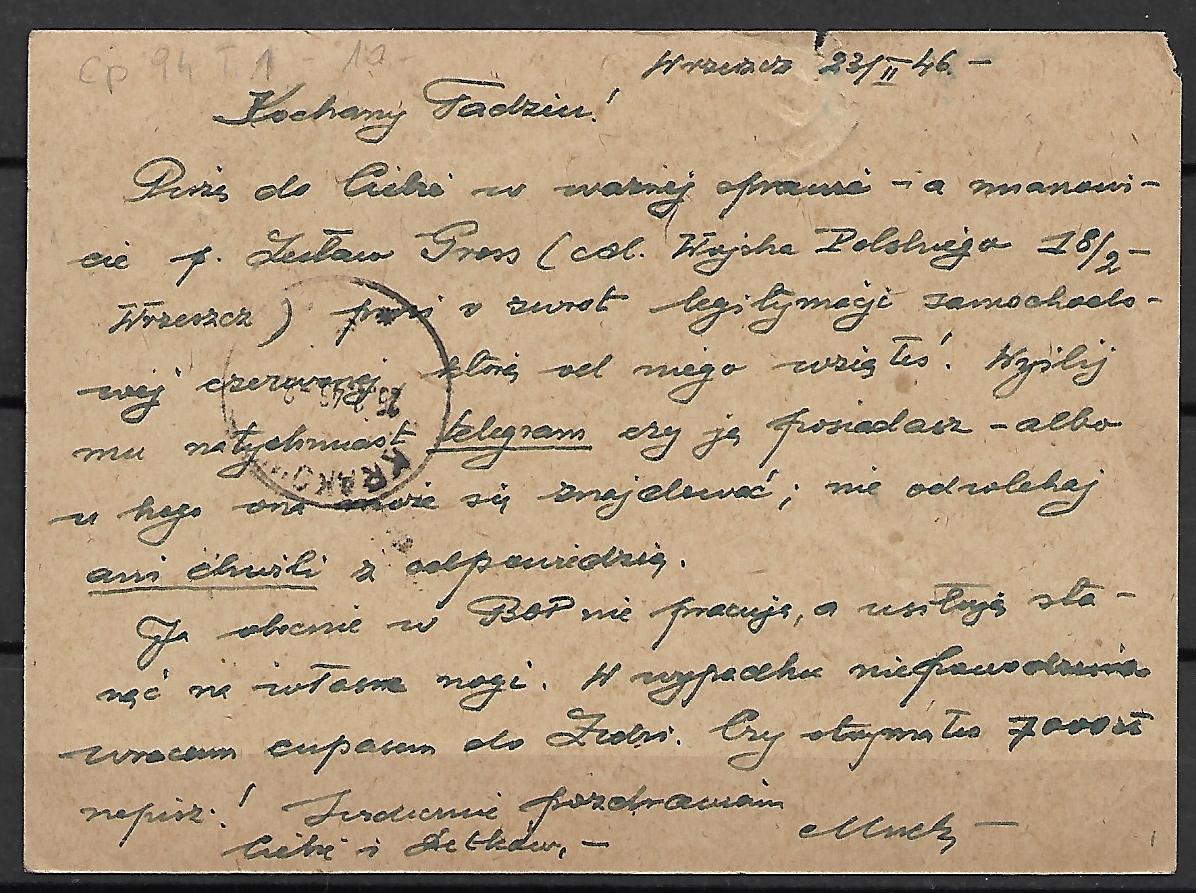 Cp 94 I 1 - 10 -
Wrzeszcz 23/II 46 -
Kochany Tadziu!
Piszę do Ciebie w ważnej sprawie - a mianowi-
cie p. Gross (ul. Wojska Polskiego 18/2 -
Wrzeszcz) prosi o zwrot legitymacji samochodo-
wej czerwonej którą od niego wziąłeś! Wyślij
mu natychmiast telegram czy ją posiadasz - albo
u kogo ona może się znajdować; nie odwlekaj
ani chwili z odpowiedzią.
Ja obecnie w BOP nie pracuję, a usiłuję sta-
nąć na własne nogi. W wypadku niepowodzenia
wracam do Czy otrzymałeś 7000 zł
napisz! Serdecznie pozdrawiam
Ciebie i
KRAKÓW